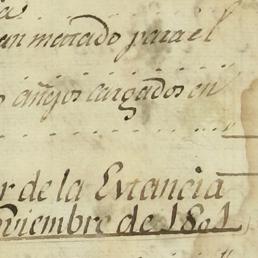 an mercado para el
añejos cargados en
r de la Estancia
oviembre de 1801